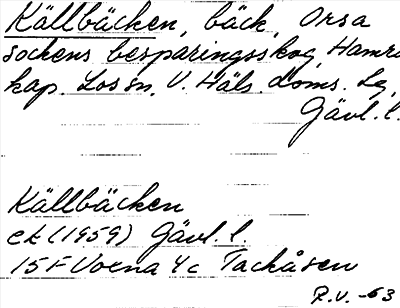 Källbäcken, bäck, Orsa
sockens besparingsskog, Hamra
kap. Los sn, V. Häls. doms. sg,
Gävl. l.
Källbäcken
ek (1959) Gävl. l.
15F Voxna 4c Tackåsen
R.V. -63